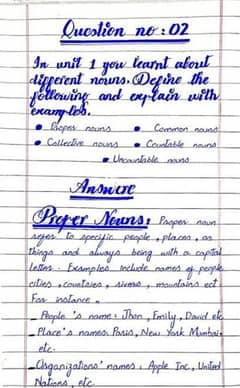 Question no : 02
In unit 1 you learnt about
different nouns. Define the
following and explain with
examples.
• Proper nouns • Common nouns
• Collective nouns • Countable nouns
• Uncountable nouns
Answere
Proper Nouns: Proper noun
refer to specific people, places, or
things and always being with a capital
letter. Examples include names of people
cities, countries, rivers, mountains ect
For instance.
_ People's name: Jhon, Emily, David etc
_ Place's names: Paris, New York Mumbai,
etc.
_ Organizations' names: Apple Inc, United
Nations, etc.